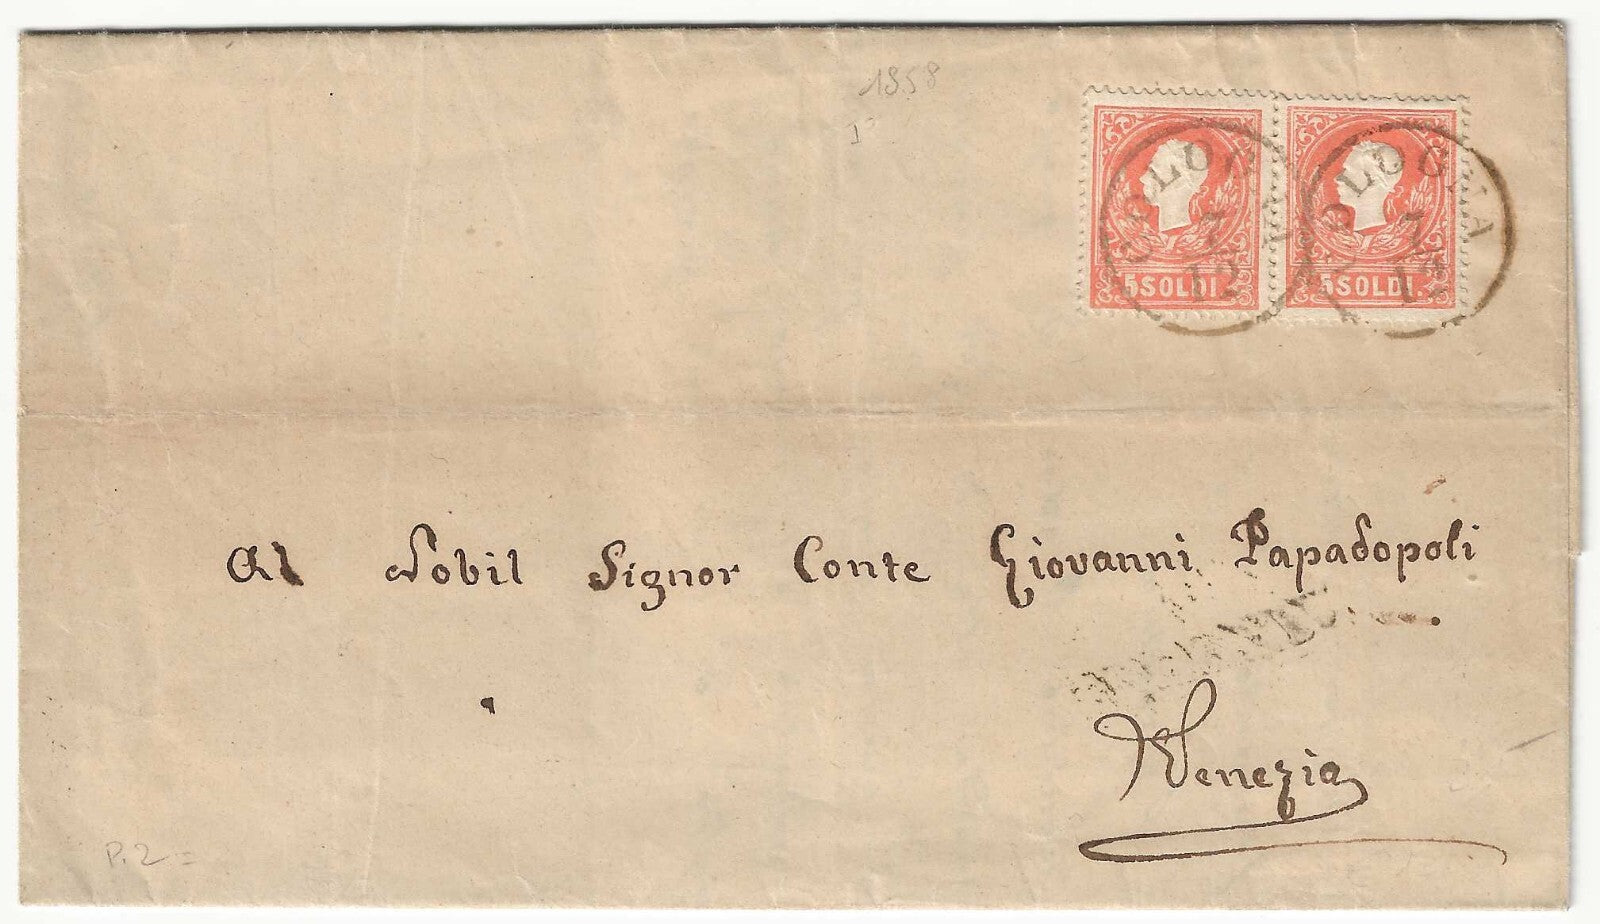 1858
5 SOLDI 5 SOLDI
COLOGNA
7
12
COLOGNA
7
12
Al Nobil Signor Conte Giovanni Papadopoli
Venezia
P. 2 =